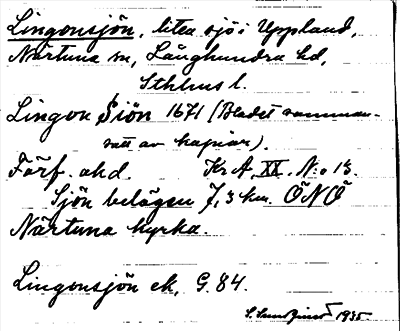 Lingonsjön, liten sjö i Uppland,
Närtuna sn, Långhundra hd,
Sthlms l.
Lingon Siön 1671 (Bladet samman-
satt av kopior).
Förf. okd. Kr A, XX. N:o 13.
Sjön belägen 7,3 km. ÖNÖ
Närtuna kyrka.
Lingonsjön ek, G. 84.
S. 1935